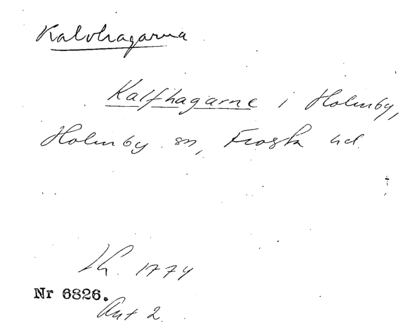 Kalvhagarna
Kalfhagarne i Holmby,
Holmby sn, Frosta hd.
Lh. 1774
Nr 6826.
Akt 2.